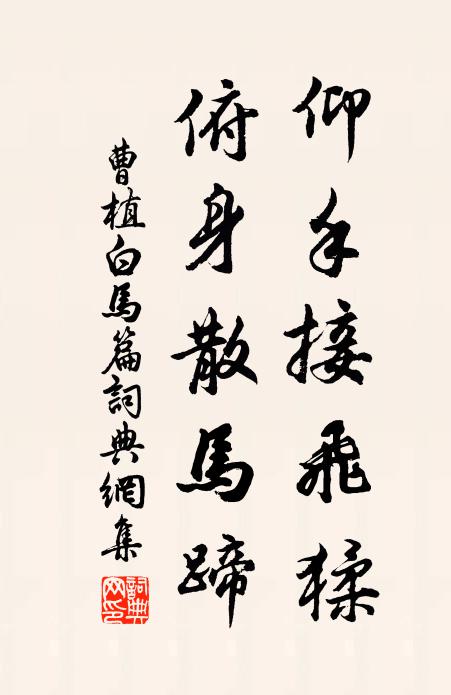 仰手接飛猱
俯身散馬蹄
曹植白馬篇詞典網集
詞典網印